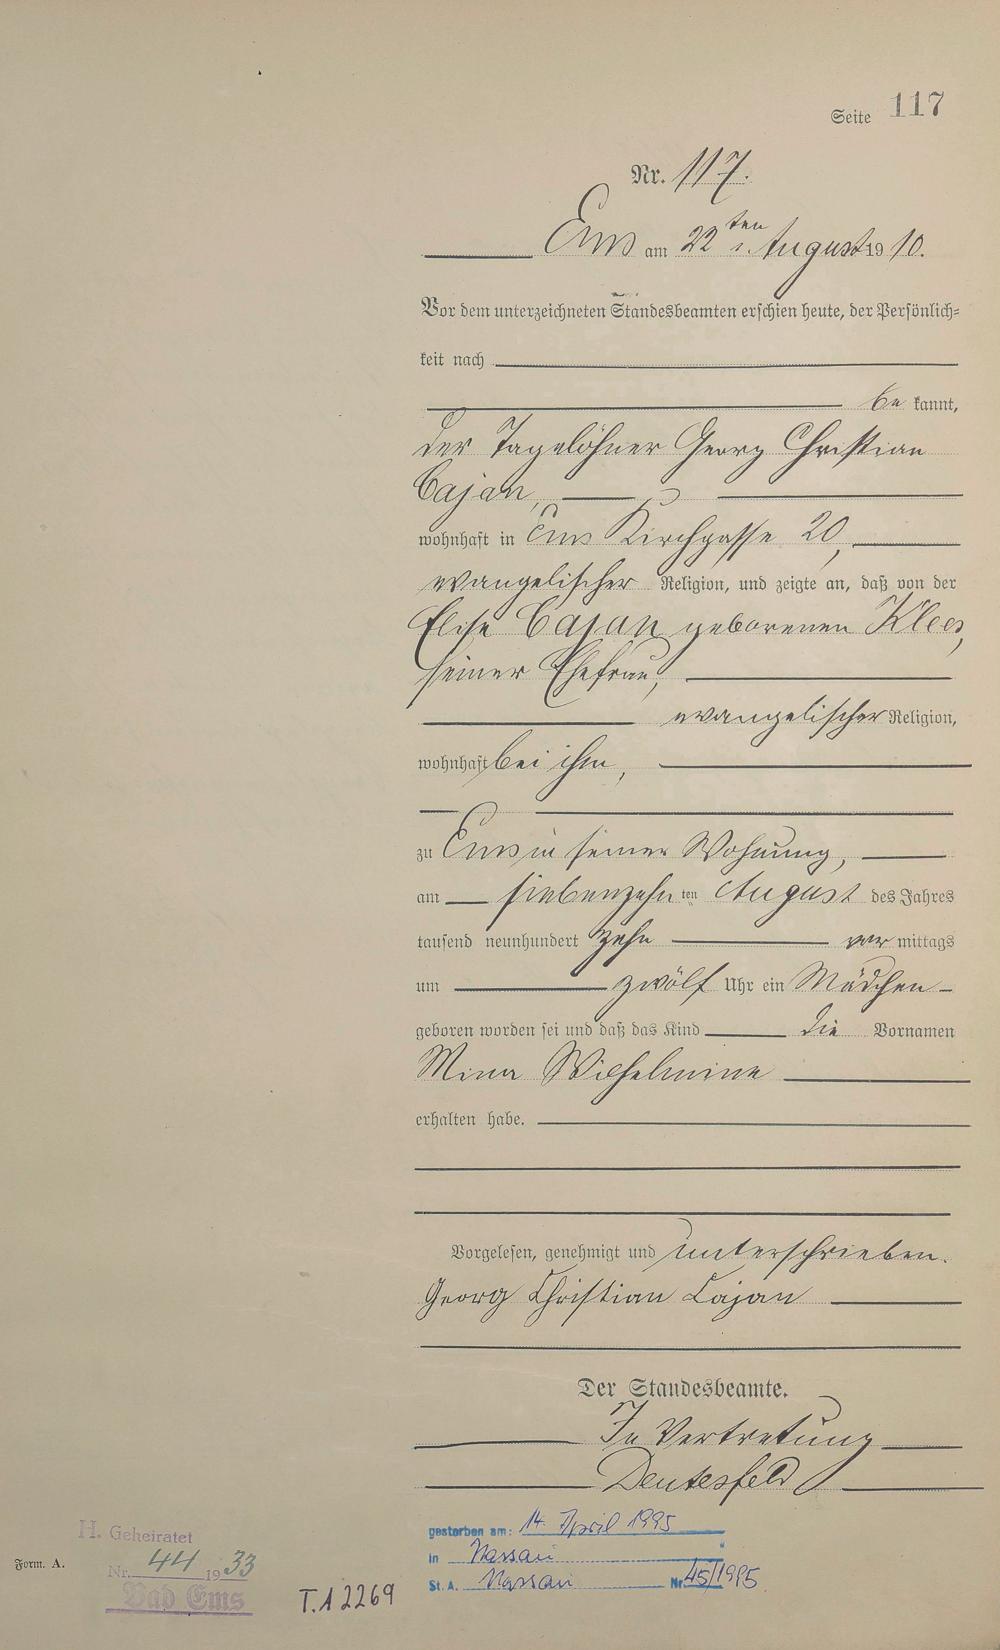 Seite 117
Nr. 117.
Ems am 22ten August 1910.
Vor dem unterzeichneten Standesbeamten erschien heute, der Persönlich=
keit nach
be kannt,
der Tagelöhner Georg Christian
Cajan,
wohnhaft in Ems Kirchgasse 20,
evangelischer Religion, und zeigte an, daß von der
Elise Cajan geborenen Klees,
seiner Ehefrau,
evangelischer Religion,
wohnhaft bei ihm,
zu Ems in seiner Wohnung,
am siebenzehn ten August des Jahres
tausend neunhundert zehn vor mittags
um zwölf Uhr ein Mädchen
geboren worden sei und daß das Kind die Vornamen
Mina Wilhelmine
erhalten habe.
Vorgelesen, genehmigt und unterschrieben.
Georg Christian Cajan
Der Standesbeamte.
In Vertretung
H. Geheiratet
Nr. 44 1933
Bad Ems
Form. A.
T.A 2269
gestorben am: 14. April 1995
in Nassau
St. A. Nassau Nr. 45/1995